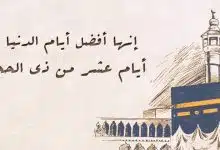 إنها أفضل أيام الدنيا
أيام عشر من ذى الحج